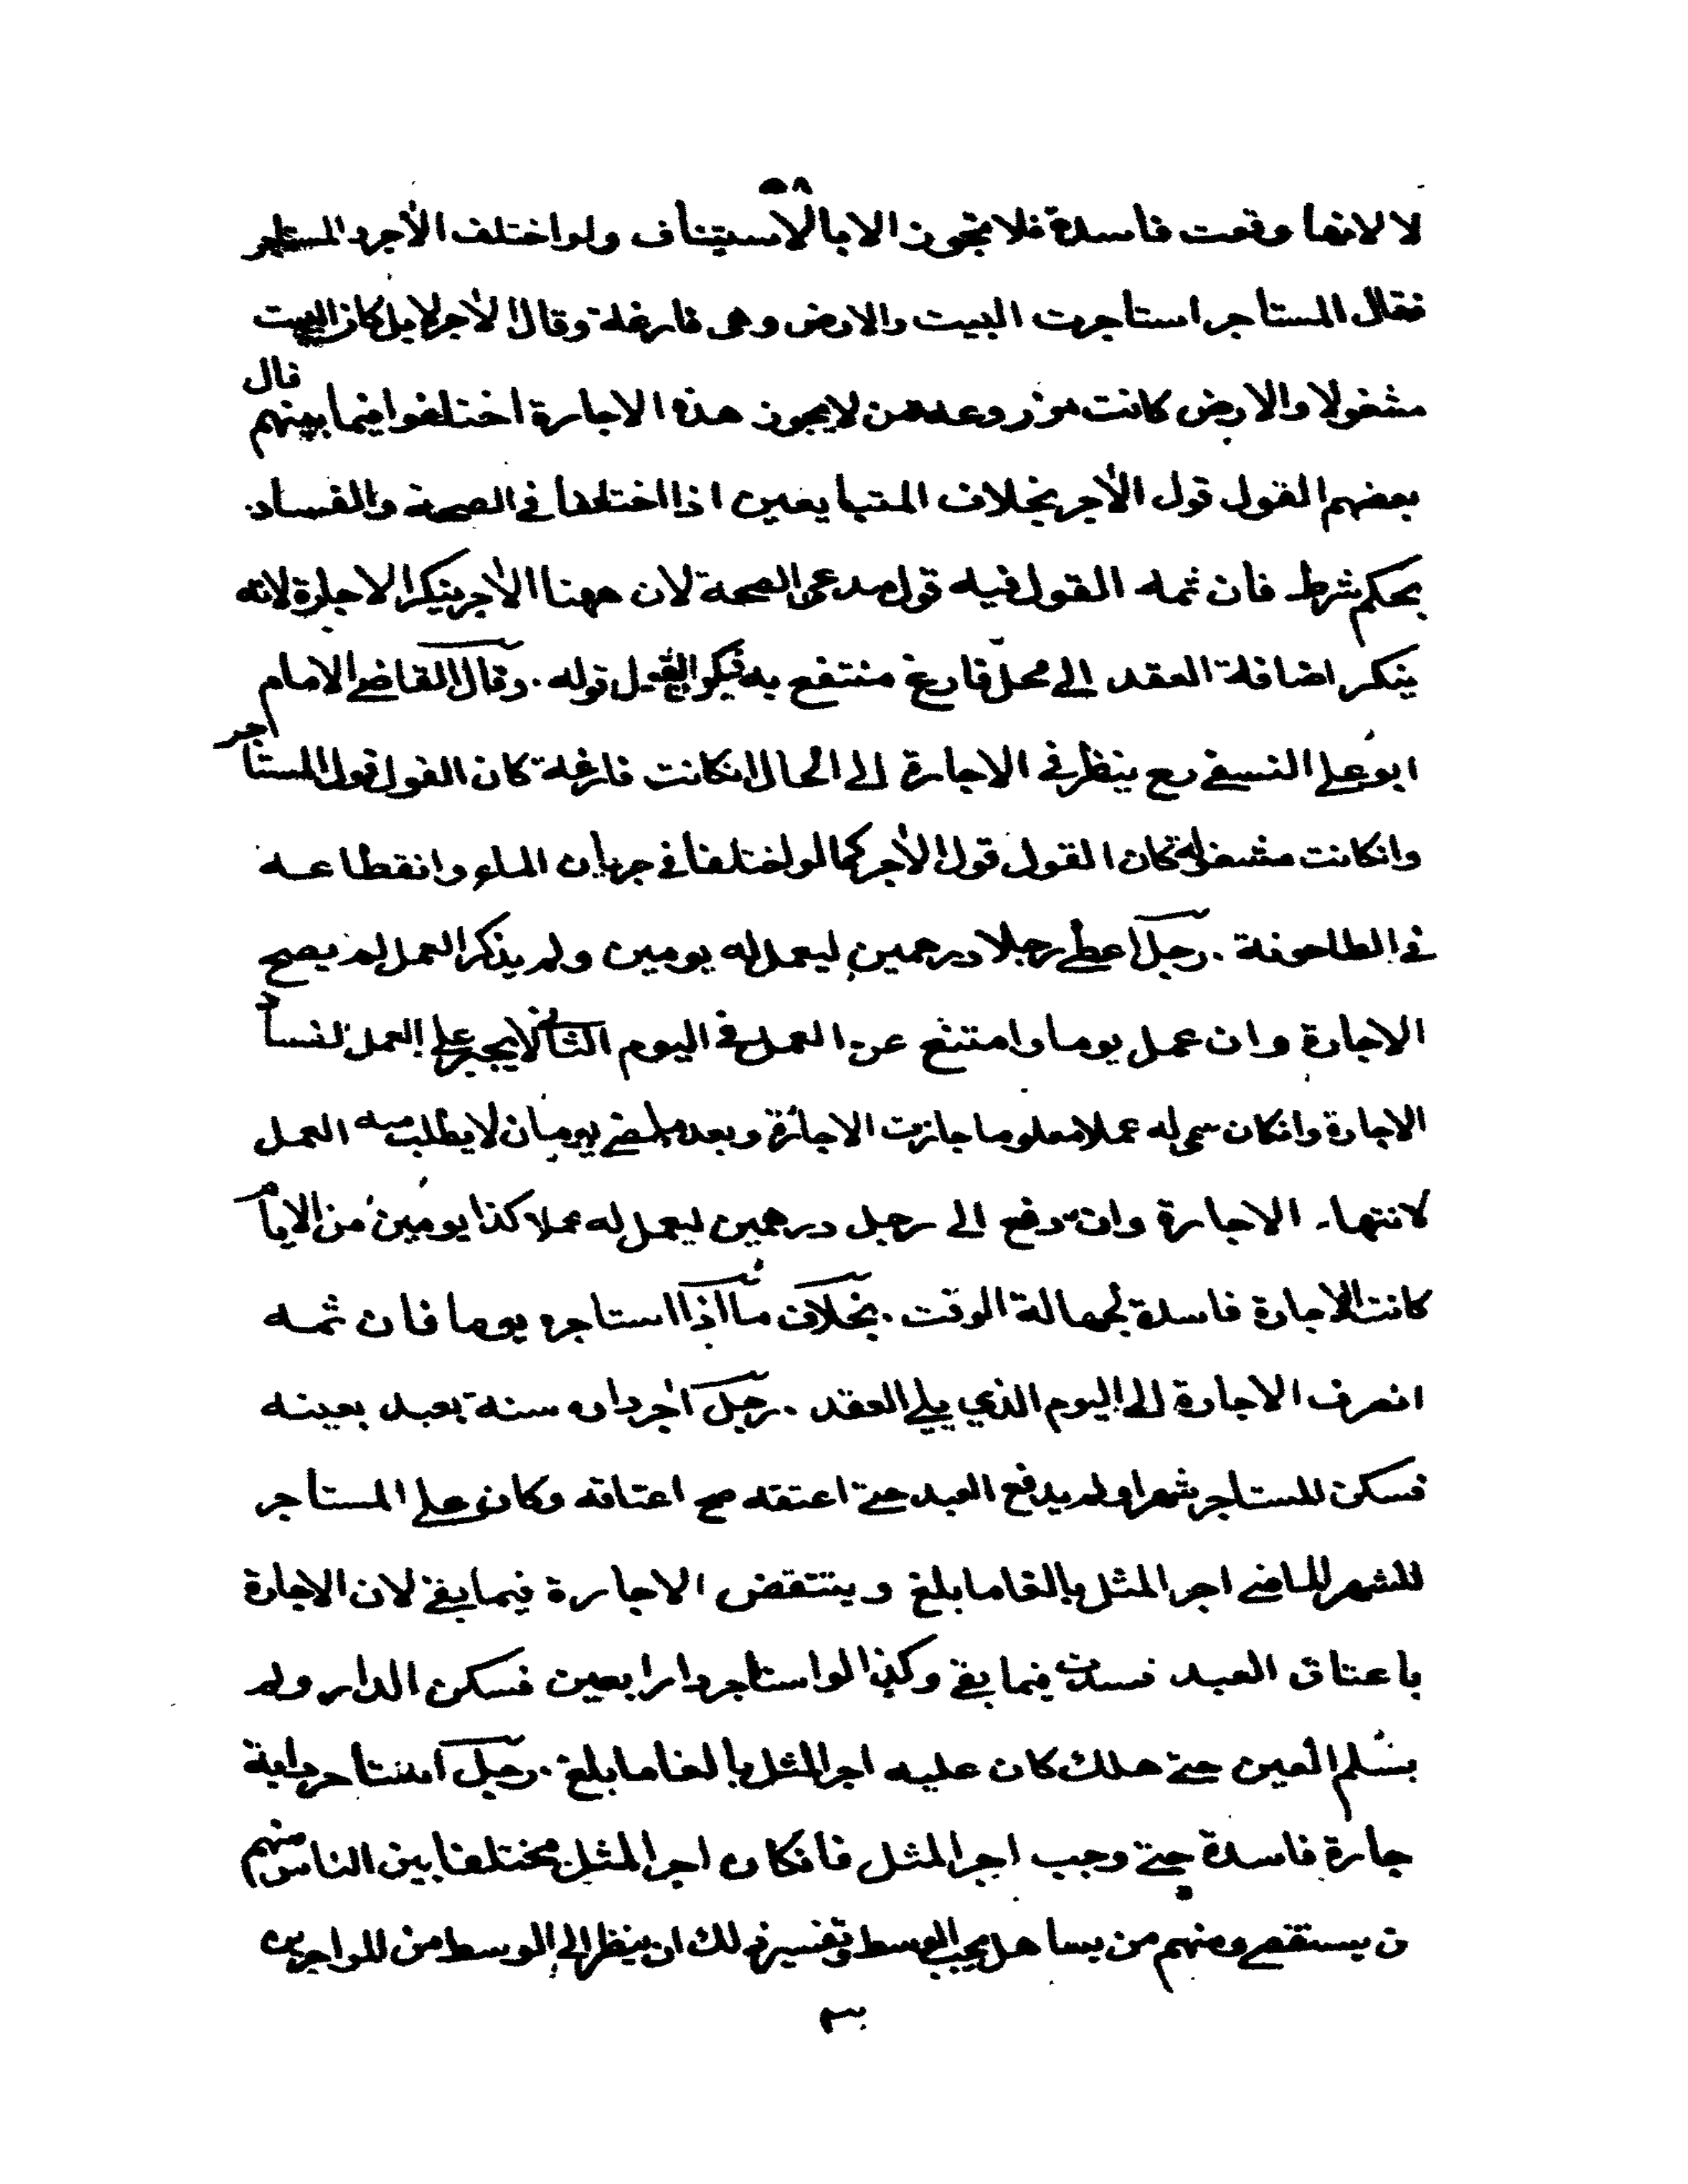 لا لانها وقعت فاسدة فلا تجوز الا بالاستيناف ولو اختلف الآجر والمستاجر
فقال المستاجر استاجرت البيت والارض وهى فارغة وقال الآجر لا بل كان البيت
مشغولا والارض كانت مزروعة لا يجوز هذه الاجارة اختلفوا فيما بينهم قال
بعضهم القول قول الآجر بخلاف المتبايعين اذا اختلفا في الصحة والفساد
بحكم شرط فان ثمه القول فيه قول مدعى الصحة لان ههنا الآجر ينكر الاجارة لانه
ينكر اضافة العقد الى محل فارغ منتفع به فيكون القول قوله . وقال القاضي الامام
ابو علي النسفي رح ينظر في الاجارة الى الحال انكانت فارغة كان القول قول المستاجر
وانكانت مشغولة كان القول قول الآجر كما لو اختلفا في جريان الماء وانقطاعه
في الطاحونة . رجل اعطى رجلا درهمين ليعمل له يومين ولم يذكر العمل لم يصح
الاجارة وان عمل يوما وامتنع عن العمل في اليوم الثاني لا يجبر على العمل لفساد
الاجارة وانكان سمى له عملا معلوما جازت الاجارة وبعد ما مضى يومان لا يطلب منه العمل
لانتهاء الاجارة وان دفع الى رجل درهمين ليعمل له عملا كذا يومين من الايام
كانت الاجارة فاسدة لجهالة الوقت . بخلاف ما اذا استاجره يوما فان ثمه
انصرف الاجارة الى اليوم الذي يلي العقد . رجل آجر داره سنة بعبد بعينه
فسكن المستاجر شهرا ولم يدفع العبد حتى اعتقه صح اعتاقه وكان على المستاجر
للشهر الماضي اجر المثل بالغا ما بلغ وينتقض الاجارة فيما بقي لان الاجارة
باعتاق العبد فسدت فيما بقي وكذا لو استاجر دارا بعين فسكن الدار ولم
يسلم العين حتى هلك كان عليه اجر المثل بالغا ما بلغ . رجل استاجر دابة
جارة فاسدة حتى وجب اجر المثل فانكان اجر المثل مختلفا بين الناس منهم
ن يستقصي ومنهم من يساهل يجب الوسط وتفسير ذلك ان ينظر الى الوسط من المواجرين